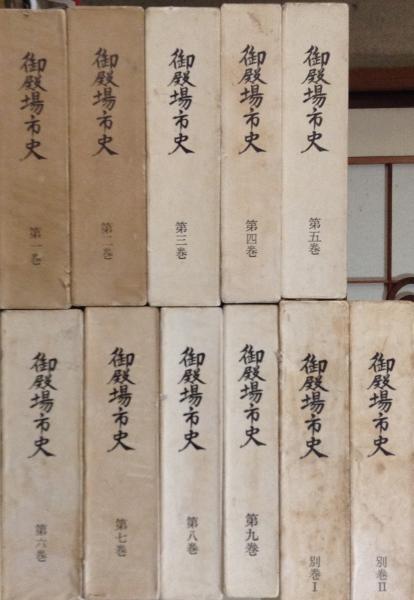 御殿場市史
第一巻
御殿場市史
第二巻
御殿場市史
第三巻
御殿場市史
第四巻
御殿場市史
第五巻
御殿場市史
第六巻
御殿場市史
第七巻
御殿場市史
第八巻
御殿場市史
第九巻
御殿場市史
別巻Ⅰ
御殿場市史
別巻Ⅱ